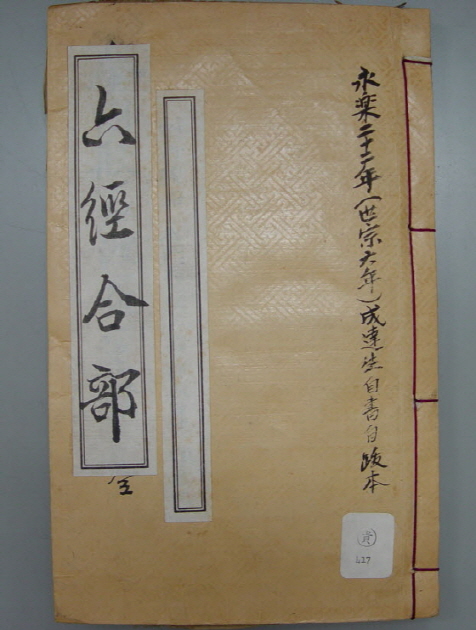 永楽二十二年(世宗六年)成達生自書自跋本
六經合部
全
427